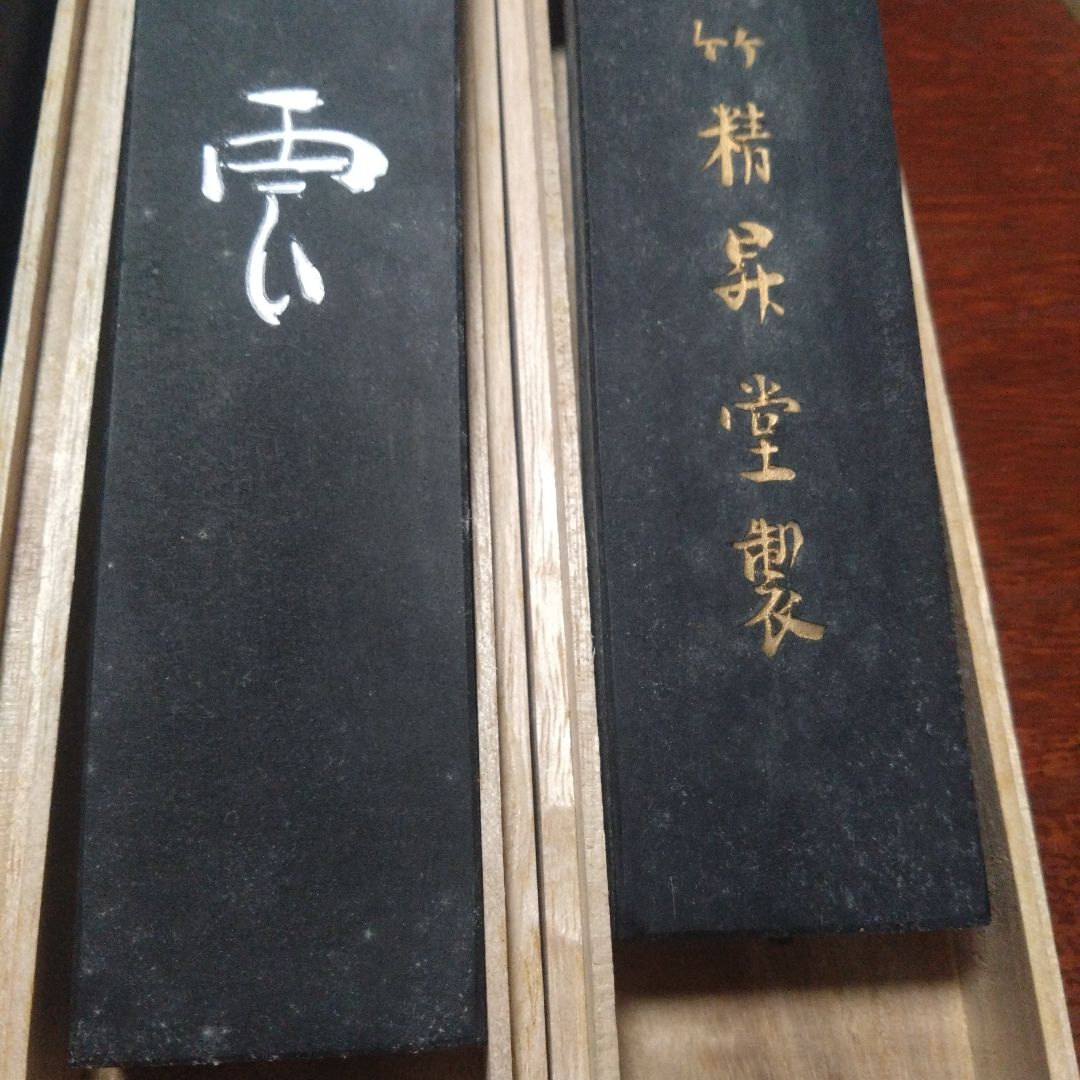 雲
竹精昇堂製